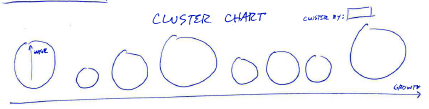 CLUSTER CHART
CLUSTER BY:
GROWTH